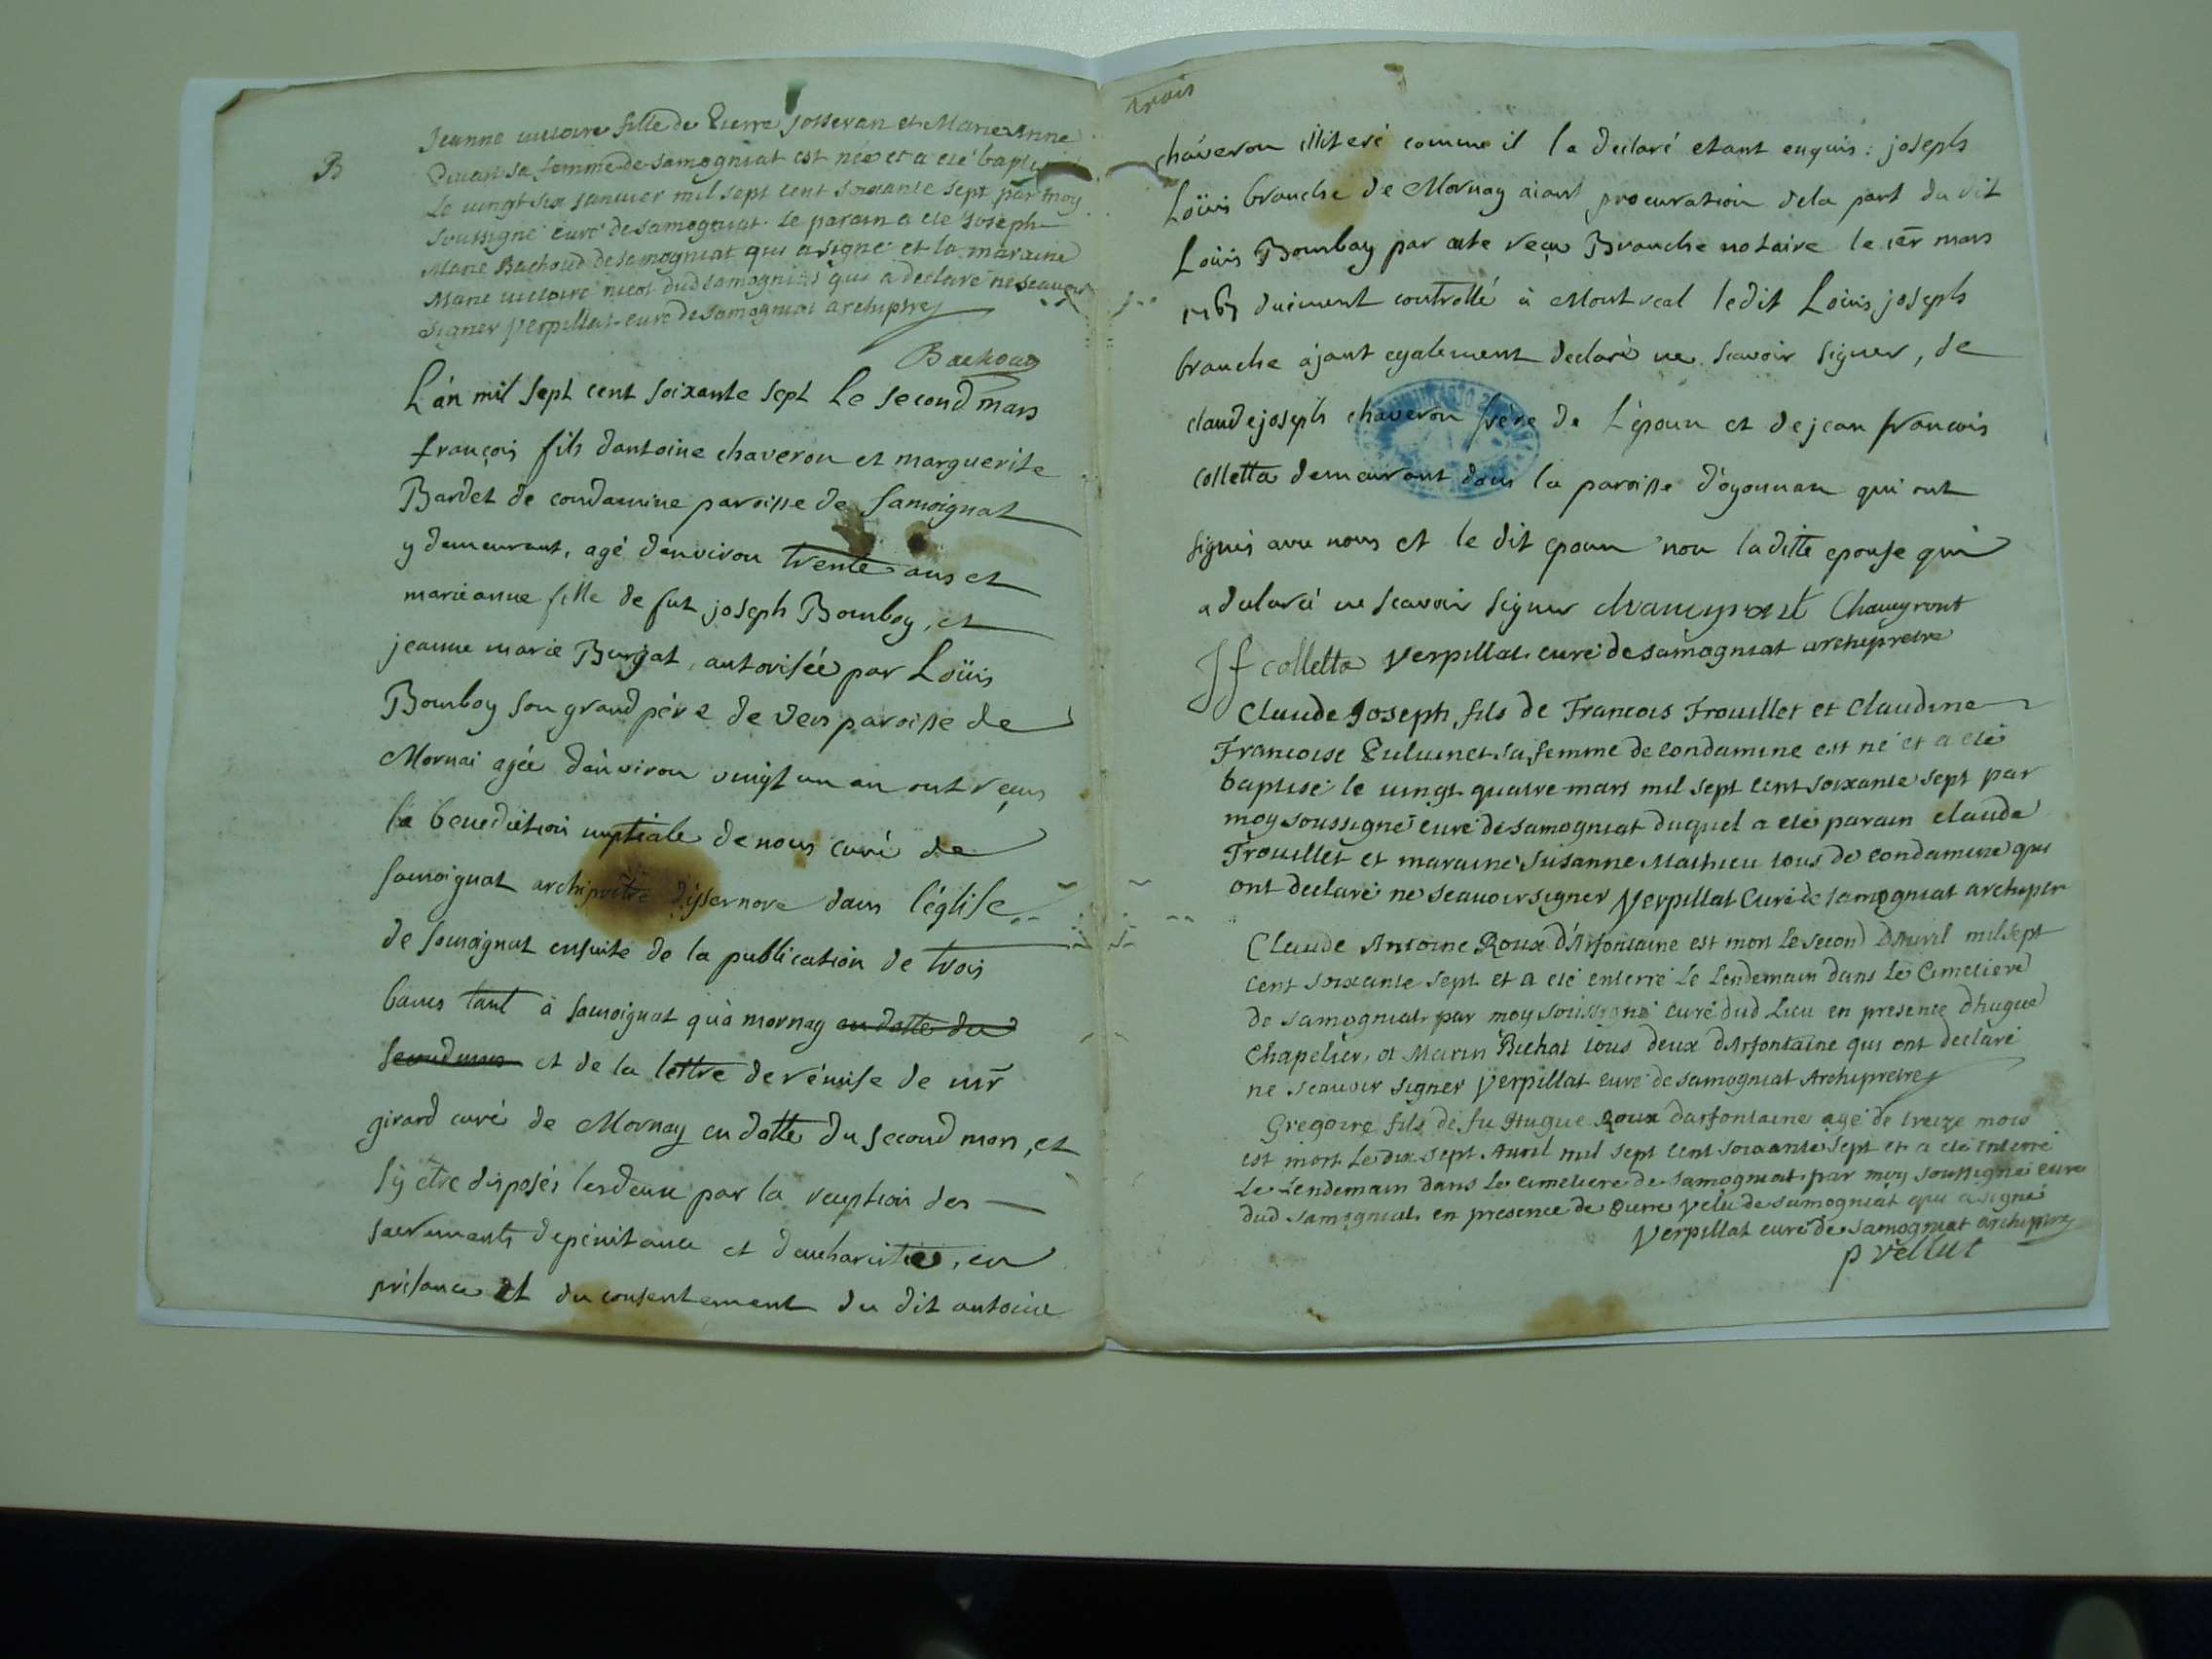 B
Jeanne victoire fille de Pierre Josseran et Marie Anne
sa femme de Samogniat est née et a eté bapt
le vingt six Janvier mil sept cent soixante sept par moy
soussigné curé de Samogniat. Le parain a eté Joseph
Marie Bachoud de Samogniat qui a signé et la maraine
Marie victoire nicot dud Samogniat qui a declaré ne scavoir
signer Verpillat curé de Samogniat archipre
Bachoud
L'an mil sept cent soixante sept Le second mars
françois fils d'antoine chaveron et marguerite
Bardet de condamine paroisse de Samoignat
y demeurant, agé d'environ trente ans et
marie anne fille de fut joseph Bomboy, et
jeanne marie Burjat, autorisée par Loüis
Bomboy son grand pére de Vers paroisse de
Mornai agée d'environ vingt un an ont reçus
la benediction nuptiale de nous curé de
samoignat archiprêtre d'ysernore dans l'église
de samoignat ensuite de la publication de trois
bans tant à samoignat qu'à mornay en datte du
second mars et de la lettre de rémise de mr
girard curé de Mornay en datte du second mars, et
s'y etre disposés les deux par la reception des
sacrements de penitance et d'eucharistie, en
présance et du consentement du dit antoine
trois
chaveron illiteré comme il la declaré etant enquis: joseph
Loüis branche de Mornay aiant procuration de la part du dit
Loüis Bombay par acte reçu Branche notaire le 1er mars
1767 duëment controllé à Montreal ledit Loüis joseph
branche ajant egalement declaré ne scavoir signer, de
claude joseph chaveron frère de L'époux et de jean francois
colletta demeurant dans la paroisse d'oyonnax qui ont
signés avec nous et le dit epoux non laditte epouse qui
a declaré ne scavoir signer Chaveyront
Jf colletta Verpillat curé de Samogniat archipretre
Claude Joseph, fils de Francois Trouillet et Claudine
Francoise sa femme de Condamine est né et a eté
baptisé le vingt quatre mars mil sept cent soixante sept par
moy soussigné curé de Samogniat duquel a eté parain claude
Trouillet et maraine Susanne Mathieu tous de Condamine qui
ont declaré ne scavoir signer Verpillat Curé de Samogniat archiptr
Claude Antoine Roux d'Arfontaine est mort le second D'Avril mil sept
cent soixante sept et a eté enterré le lendemain dans le Cimetiere
de Samogniat par moy soussigné curé dud Lieu en presence d'hugue
Chapelier, et Marin Bichat tous deux d'Arfontaine qui ont declaré
ne scavoir signer Verpillat curé de Samogniat Archipretre
Gregoire fils de fu Hugue Roux d'arfontaine agé de treize mois
est mort le dix sept Avril mil sept cent soixante sept et a eté enterré
le Lendemain dans le cimetiere de Samogniat par moy soussigné curé
dud Samogniat en presence de Pierre Velu de Samogniat qui a signé
Verpillat curé de Samogniat archiptre
p vellut